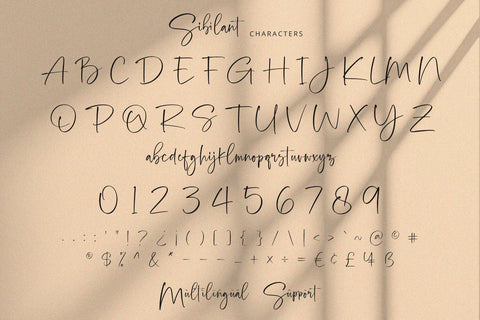 Sibilant CHARACTERS
A B C D E F G H I J K L M N
O P Q R S T U V W X Y Z
abcdefghijklmnopqrstuvwxyz
0 1 2 3 4 5 6 7 8 9
. , : ; " ' ! ? ¿ ¡ ( ) [ ] { } / \ | < > ` ~ @ © #
® $ % ^ & * - – — _ + × ÷ = € ¢ £ ¥ ß
Multilingual Support